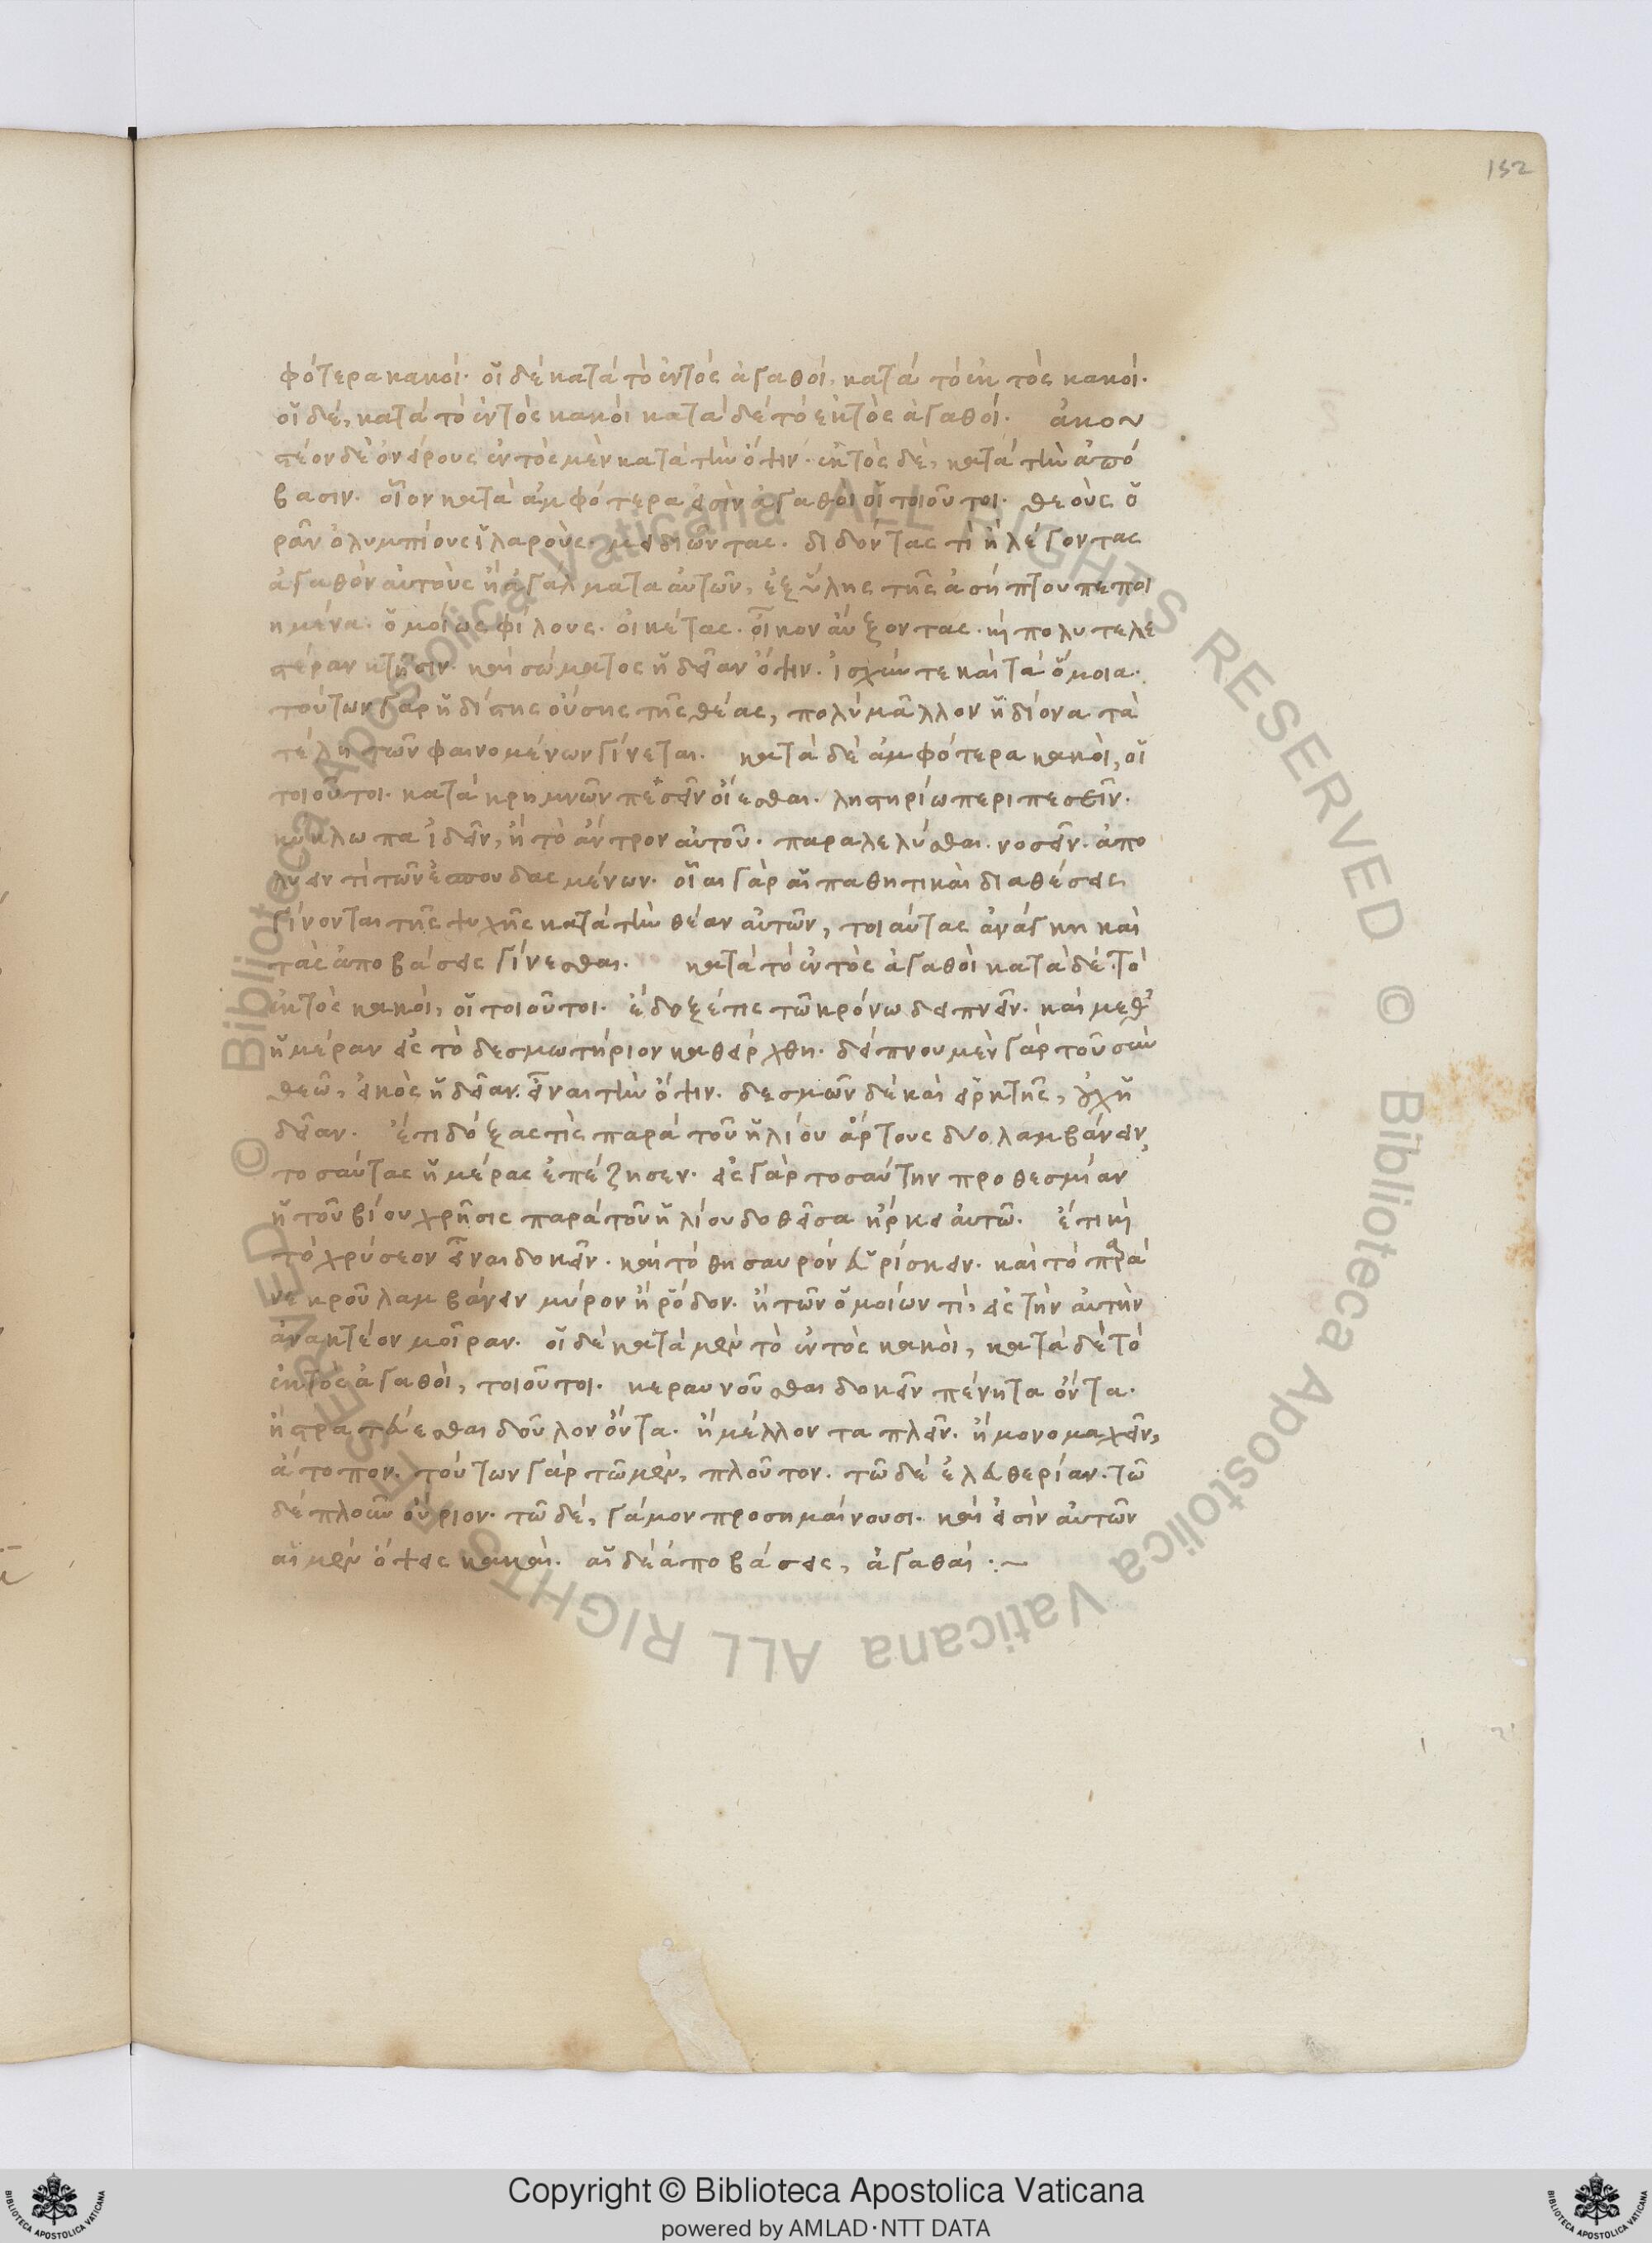 152
φότερα κακοί· οἱ δὲ κατὰ τὸ ἐντὸς ἀγαθοί, κατὰ τὸ ἐκτὸς κακοί·
οἱ δὲ, κατὰ τὸ ἐντὸς κακοὶ κατὰ δὲ τὸ ἐκτὸς ἀγαθοί· ἀκου
στέον δὲ ὀνείρους ἐντὸς μὲν κατὰ τὴν ὄψιν· ἐκτὸς δὲ, κατὰ τὴν ἀπό
βασιν· οἷον κατὰ ἀμφότερα εἰσὶν ἀγαθοὶ οἱ τοιοῦτοι· θεοὺς ὁ
ρᾶν ὀλυμπίους ἱλαροὺς· μειδιῶντας· διδόντας τὶ ἢ λέγοντας
ἀγαθὸν αὐτοὺς ἢ ἀγάλματα αὐτῶν, ἐξ ὕλης τῆς ἀσήπτου πεποι
ημένα· ὁμοίως φίλους· οἰκέτας· οἶκον αὔξοντας· καὶ πολυτελε
στέραν κτῆσιν· καὶ σώματος ἡδεῖαν ὄψιν· ἰσχύν τε καὶ τὰ ὅμοια·
τούτων γὰρ ἡδίστης οὔσης τῆς θέας, πολὺ μᾶλλον ἡδίονα τὰ
τέλη τῶν φαινομένων γίνεται· κατὰ δὲ ἀμφότερα κακοὶ, οἱ
τοιοῦτοι· κατὰ κρημνῶν πεσεῖν οἴεσθαι· ληστηρίω περιπεσεῖν·
κύκλωπα ἰδεῖν, ἢ τὸ ἄντρον αὐτοῦ· παραλελύσθαι· νοσεῖν· ἀπο
λύειν τὶ τῶν ἐσπουδασμένων· οἷαι γὰρ αἱ παθητικαὶ διαθέσεις
γίνονται τῆς ψυχῆς κατὰ τὴν θέαν αὐτῶν, τοιαύτας ἀνάγκη καὶ
τὰς ἀποβάσεις γίνεσθαι· κατὰ τὸ ἐντὸς ἀγαθοὶ κατὰ δὲ τὸ
ἐκτὸς κακοὶ, οἱ τοιοῦτοι· ἔδοξέ τις τῶ κρόνω δειπνεῖν· καὶ μεθ'
ἡμέραν εἰς τὸ δεσμωτήριον καθείρχθη· δείπνου μὲν γὰρ τοῦ σὺν
θεῶ, εἰκὸς ἡδεῖαν εἶναι τὴν ὄψιν· δεσμῶν δὲ καὶ εἱρκτῆς, οὐχ ἡ
δεῖαν· ἔτι δόξας τὶς παρὰ τοῦ ἡλίου ἄρτους δύο λαμβάνειν,
τοσαύτας ἡμέρας ἐπέζησεν· εἰς γὰρ τοσαύτην προθεσμίαν
ἡ τοῦ βίου χρῆσις παρὰ τοῦ ἡλίου δοθεῖσα ἤρκει αὐτῶ· ἔτι καὶ
τὸ χρύσεον εἶναι δοκεῖν· καὶ τὸ θησαυρὸν εὑρίσκειν· καὶ τὸ παρὰ
νεκροῦ λαμβάνειν μύρον ἢ ῥόδον· ἢ τῶν ὁμοίων τὶ, εἰς τὴν αὐτὴν
ἀνακτέον μοῖραν· οἱ δὲ κατὰ μὲν τὸ ἐντὸς κακοὶ, κατὰ δὲ τὸ
ἐκτὸς ἀγαθοὶ, τοιοῦτοι· κεραυνοῦσθαι δοκεῖν πένητα ὄντα·
ἢ στρατεύεσθαι δοῦλον ὄντα· ἢ μέλλοντα πλεῖν· ἢ μονομαχεῖν,
ἄτοπον· τούτων γὰρ τῶ μὲν, πλοῦτον· τῶ δὲ ἐλευθερίαν· τῶ
δὲ πλοῦν οὔριον· τῶ δὲ, γάμον προσημαίνουσι· καὶ εἰσὶν αὐτῶν
αἱ μὲν ὄψεις κακαὶ· αἱ δὲ ἀποβάσεις, ἀγαθαί :~
Copyright © Biblioteca Apostolica Vaticana
powered by AMLAD·NTT DATA